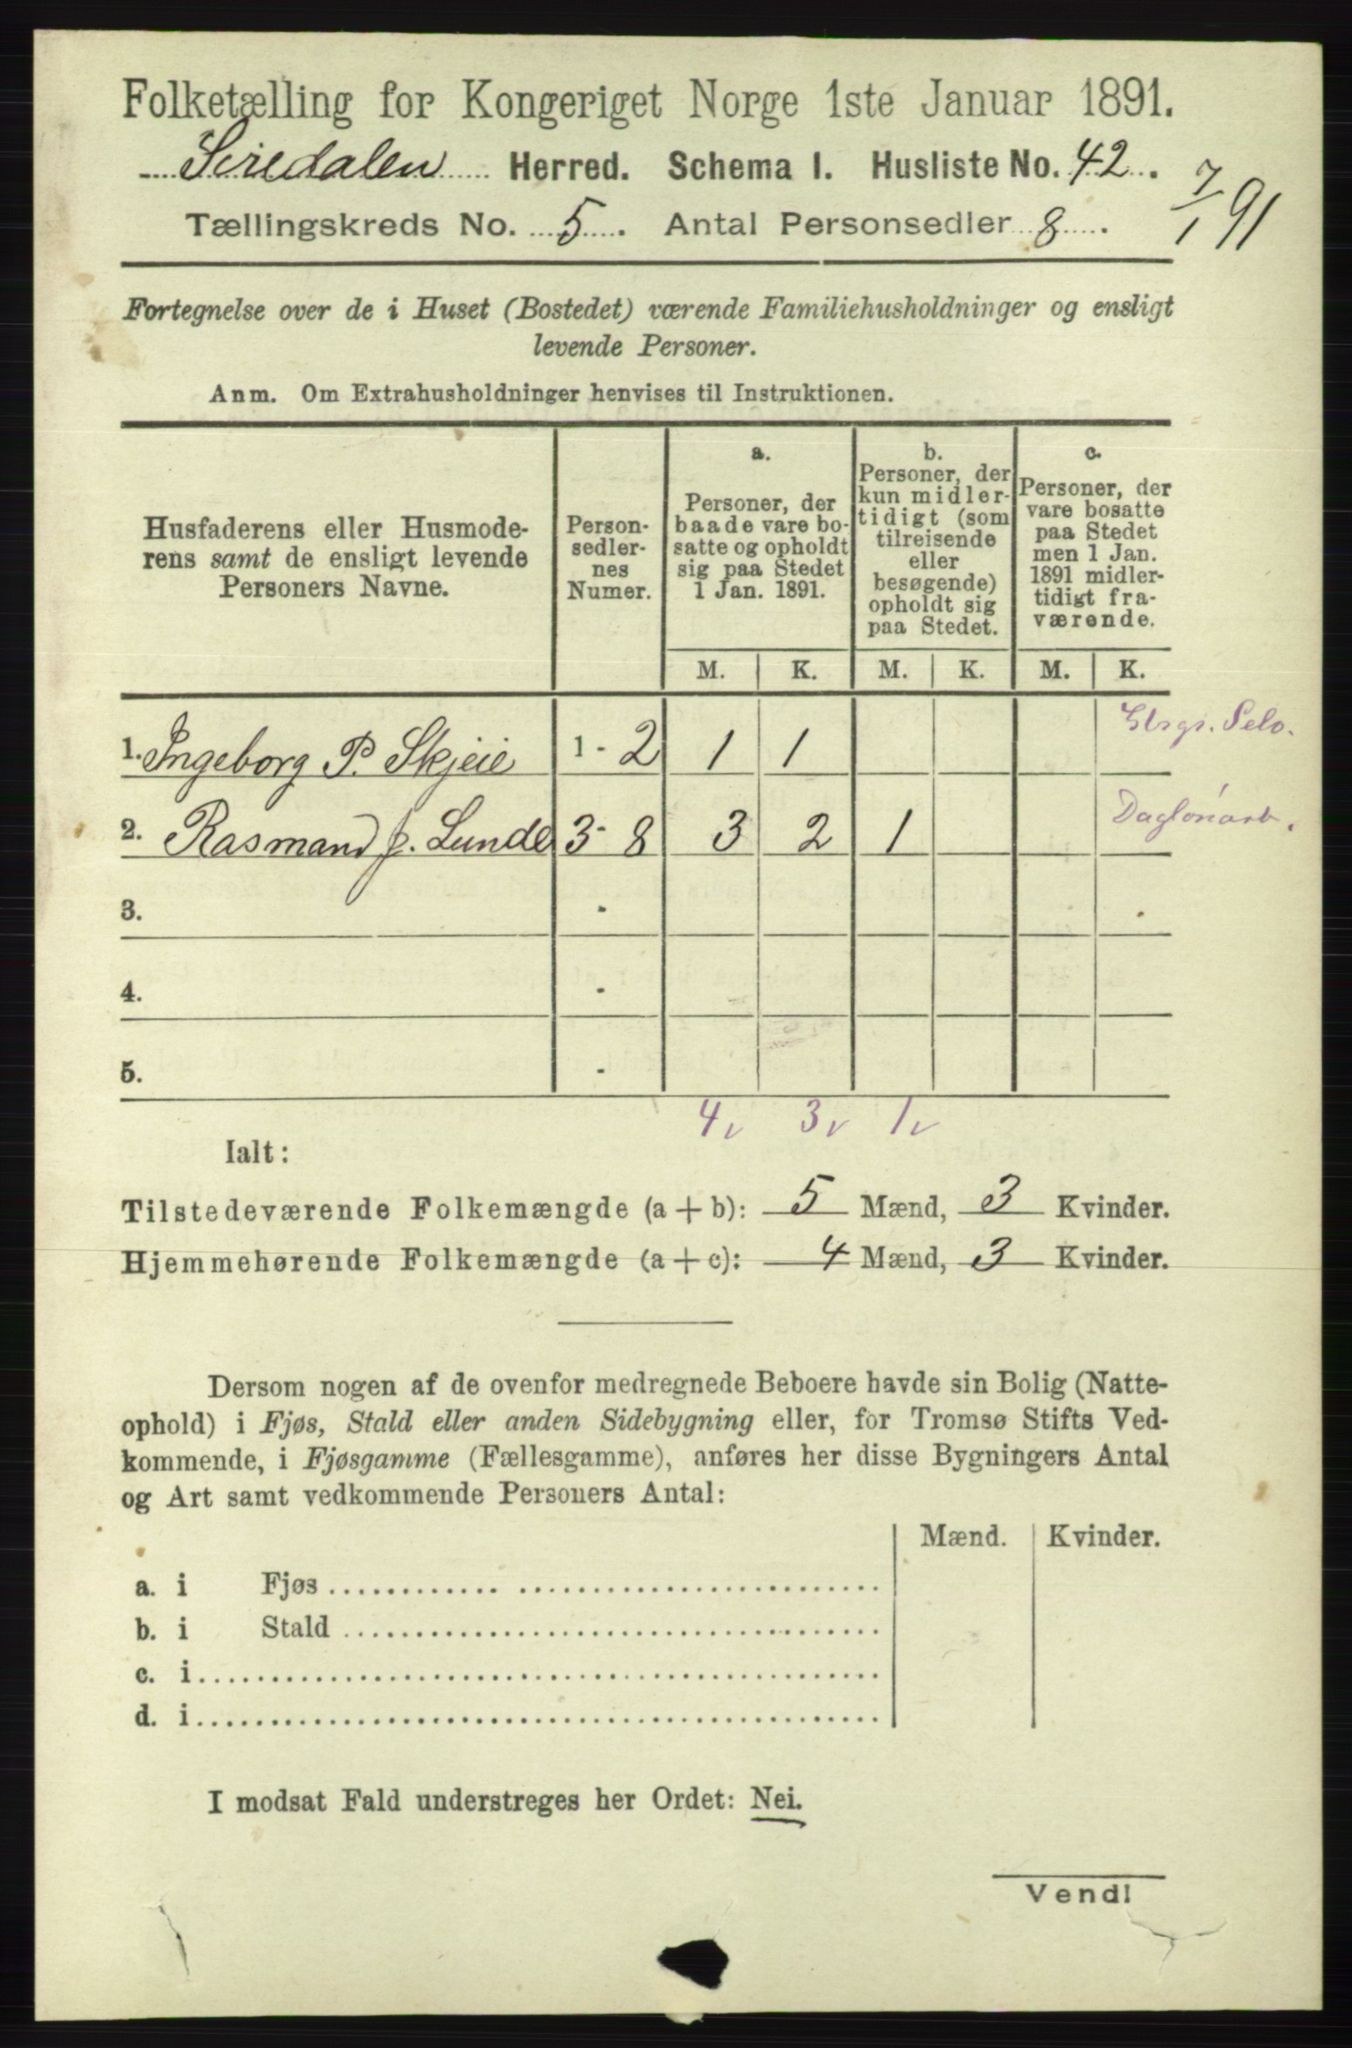 Folketælling for Kongeriget Norge 1ste Januar 1891.
Siredalen Herred. Schema I. Husliste No. 42.
7/1 91
Tællingskreds No. 5. Antal Personsedler 8.
Fortegnelse over de i Huset (Bostedet) værende Familiehusholdninger og ensligt
levende Personer.
Anm. Om Extrahusholdninger henvises til Instruktionen.
Husfaderens eller Husmode-
rens samt de ensligt levende
Personers Navne.
Person-
sedler-
nes
Numer.
a.
Personer, der
baade vare bo-
satte og opholdt
sig paa Stedet
1 Jan. 1891.
b.
Personer, der
kun midler-
tidigt (som
tilreisende
eller
besøgende)
opholdt sig
paa Stedet.
c.
Personer, der
vare bosatte
paa Stedet
men 1 Jan.
1891 midler-
tidigt fra-
værende.
M. K. M. K. M. K.
1. Ingeborg P. Skjeie 1 - 2 1 1 Selv.
2. Rasmand J. Lunde 3 - 8 3 2 1 Daglönarb.
3. -
4. -
5. -
4 3 1
Ialt:
Tilstedeværende Folkemængde (a + b): 5 Mænd, 3 Kvinder.
Hjemmehørende Folkemængde (a + c): 4 Mænd, 3 Kvinder.
Dersom nogen af de ovenfor medregnede Beboere havde sin Bolig (Natte-
ophold) i Fjøs, Stald eller anden Sidebygning eller, for Tromsø Stifts Ved-
kommende, i Fjøsgamme (Fællesgamme), anføres her disse Bygningers Antal
og Art samt vedkommende Personers Antal:
Mænd. Kvinder.
a. i Fjøs
b. i Stald
c. i
d. i
I modsat Fald understreges her Ordet: Nei.
Vend!